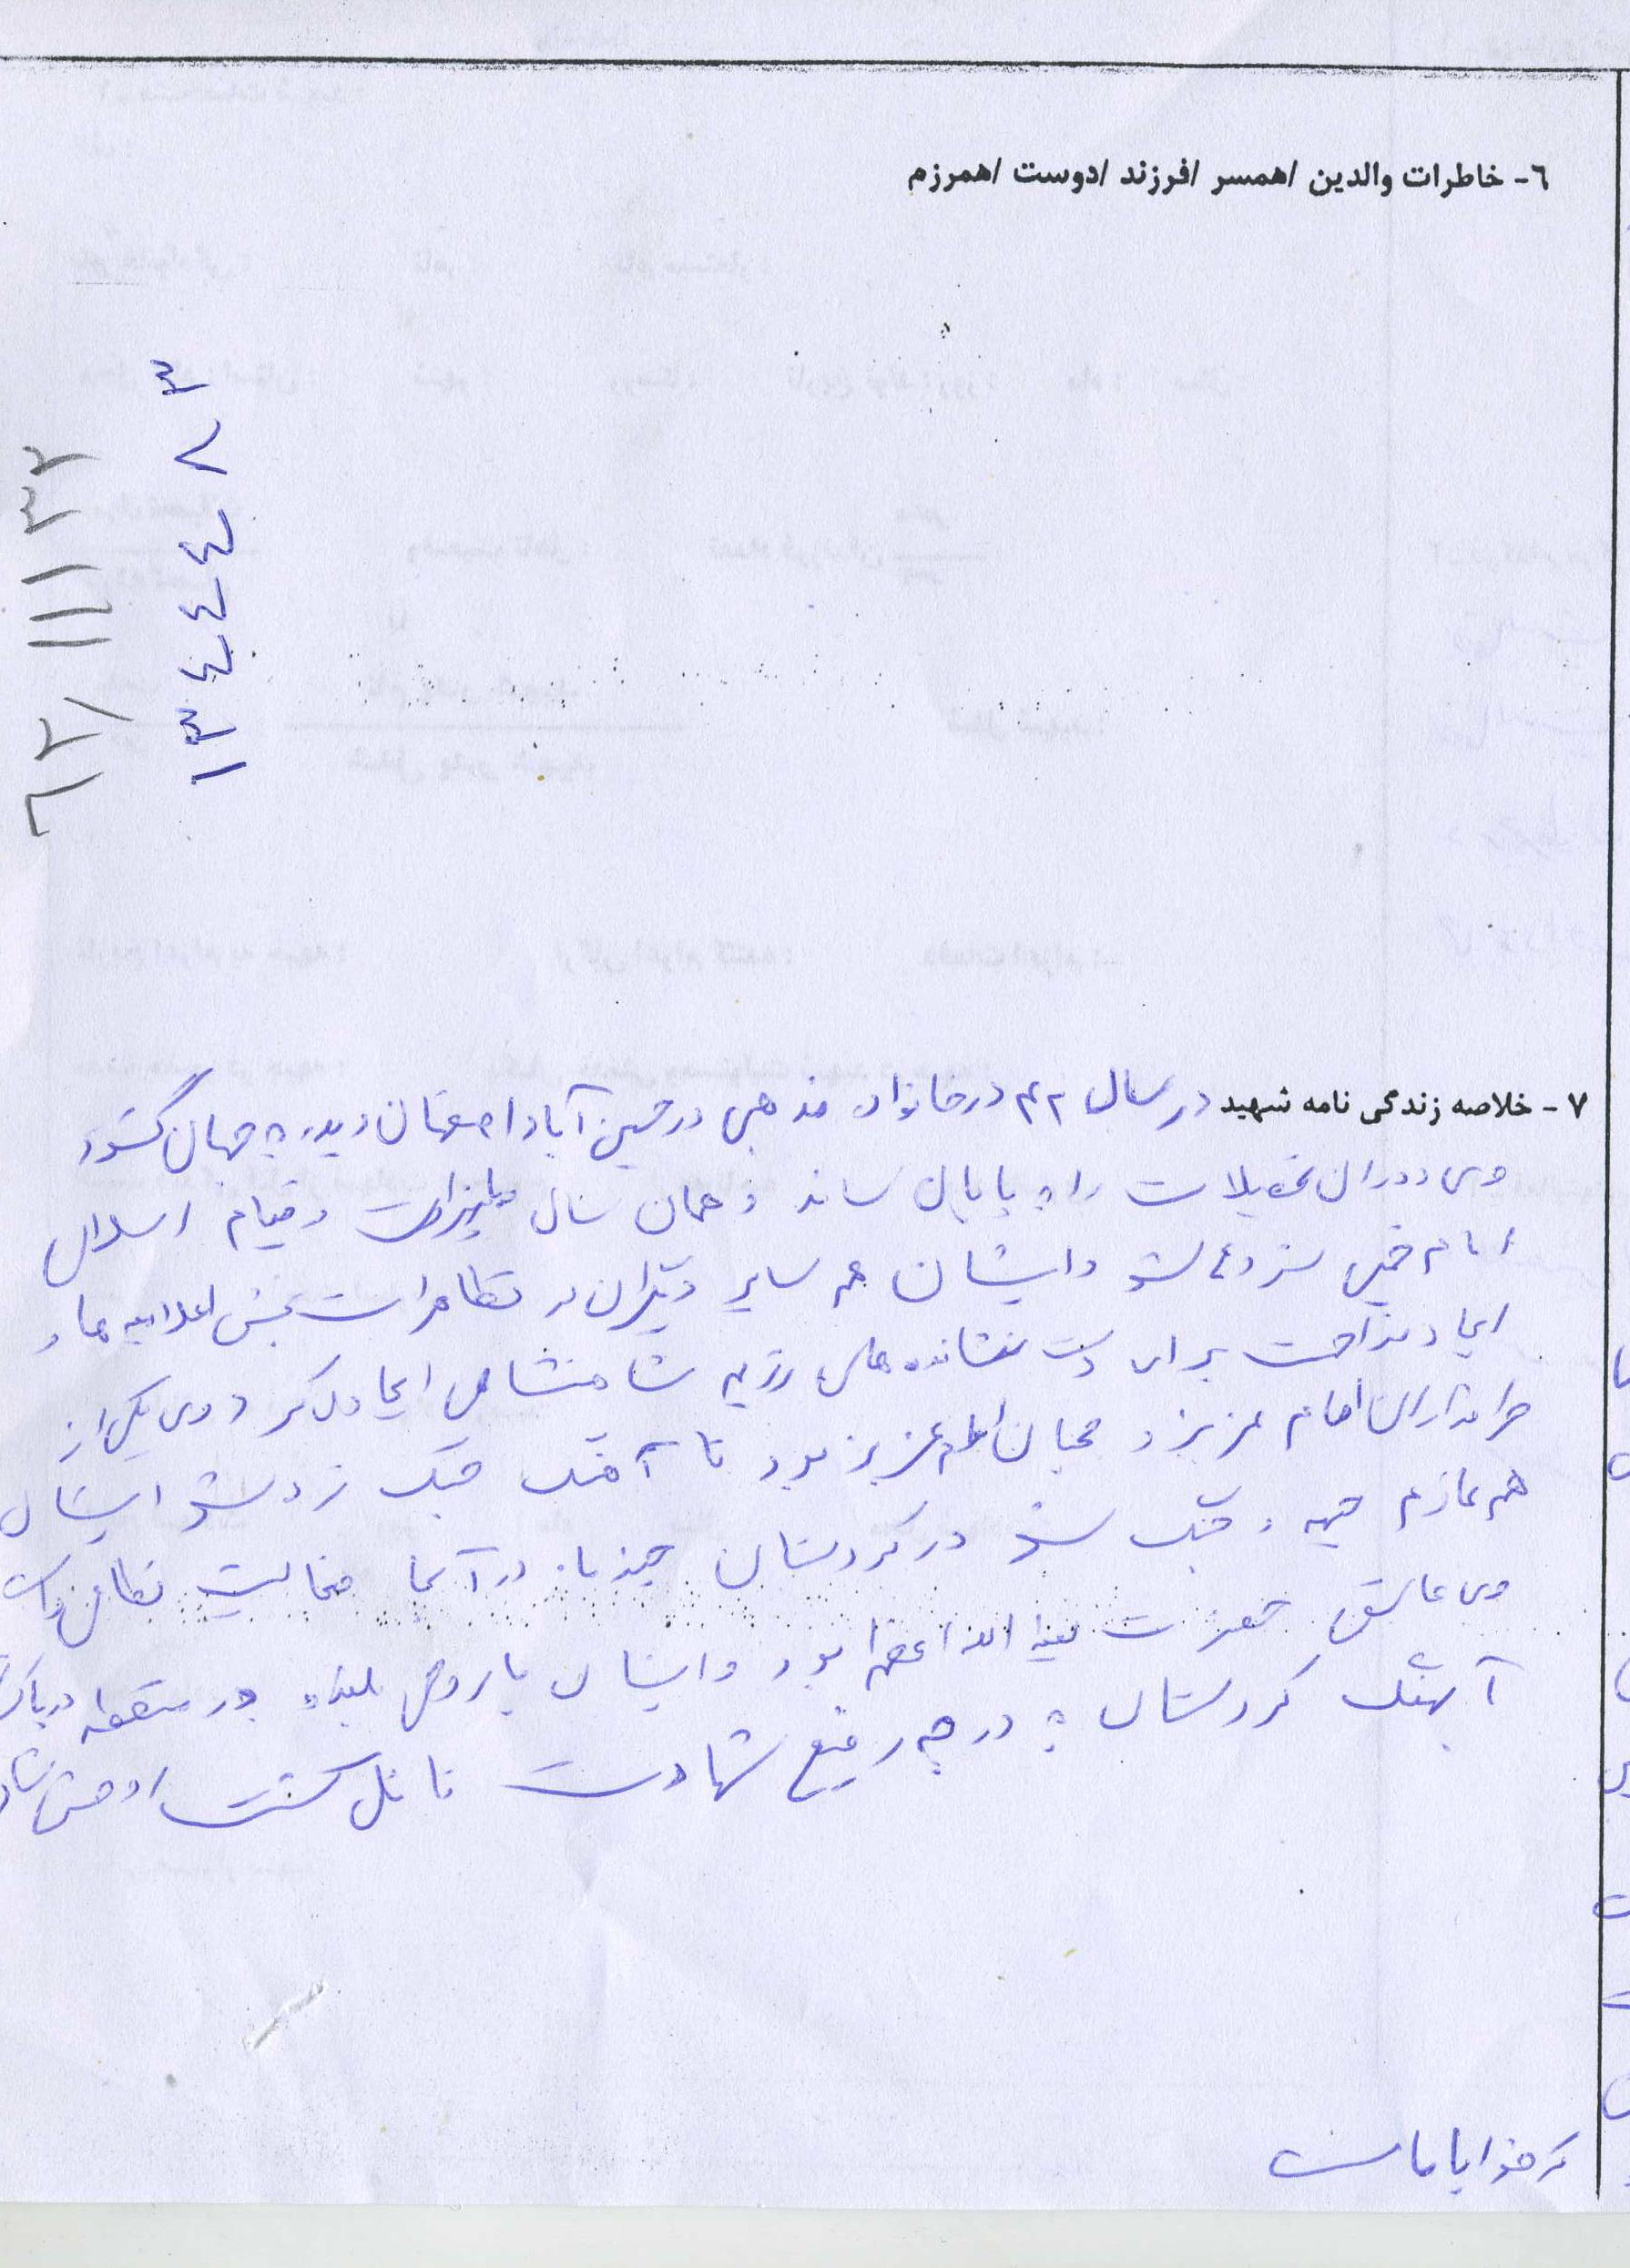 ٦- خاطرات والدین /همسر /فرزند /دوست /همرزم
١٣٤٤٤٨٣
٧- خلاصه زندگی نامه شهید در سال ٤٢ در خانواده مذهبی در حسین آباد اصفهان دیده به جهان گشود
وی دوران تحصیلات را به پایان رساند و همان سال و قیام اسلامی
امام خمینی شروع شد و ایشان هم سایر دیگران در تظاهرات پخش اعلامیه ها و
ایجاد مزاحمت برای دست نشانده های رژیم شاهنشاهی ایجاد می کرد و وی یکی از
طرفداران امام عزیز و محبان امام عزیز بود تا آنکه جنگ زده شد ایشان
هم عازم جبهه و جنگ شد در کردستان چند ماه در آنجا فعالیت نظامی داشت
وی عاشق حضرت بقیة الله اعظم بود و ایشان با روحی بلند در منطقه
کردستان به درجه رفیع شهادت نائل گشت روحش شاد